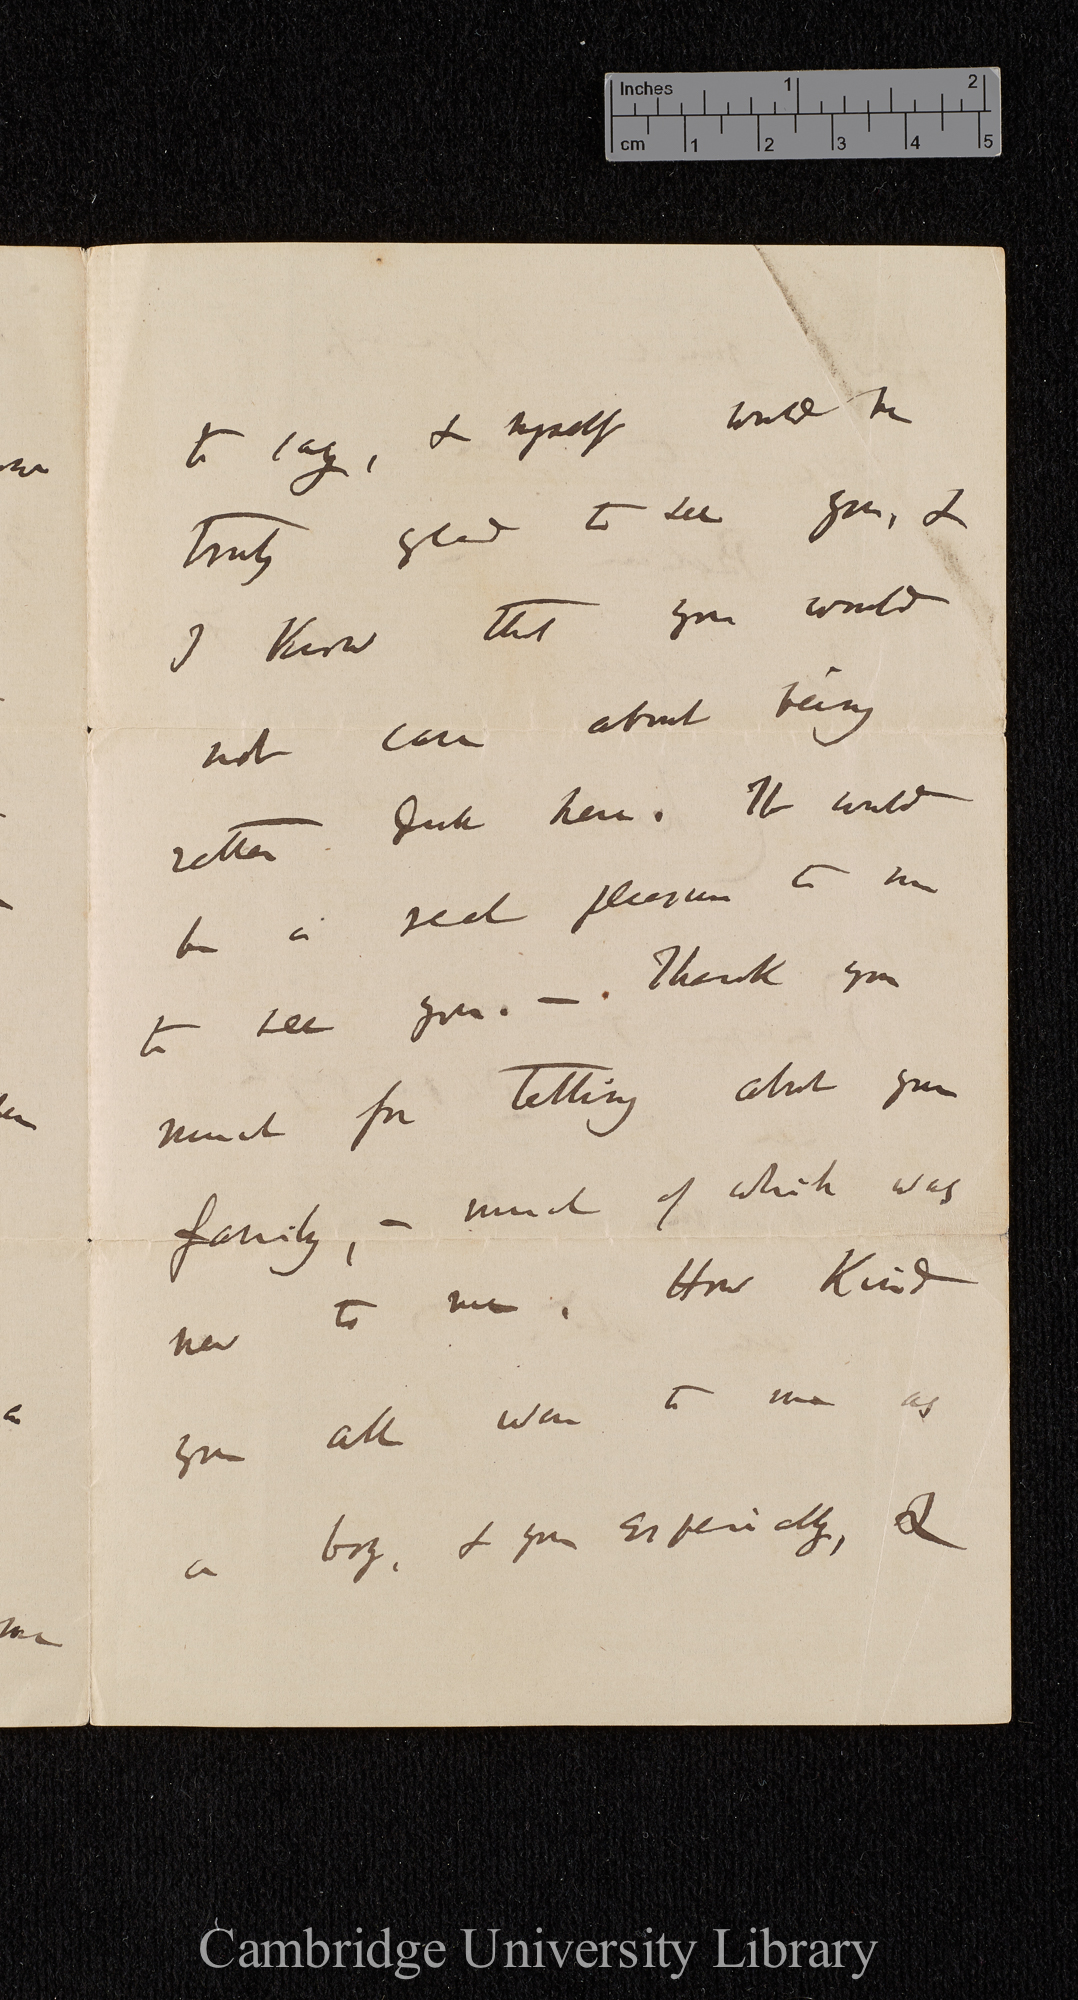 Inches 1 2
cm 1 2 3 4 5
to say, & myself would be
truly glad to see you, &
I know that you would
not care about being
rather dull here. It would
be a real pleasure to me
to see you. — Thank you
much for telling about your
family, — much of which was
new to me. How kind
you all were to me as
a boy, & you especially, &
Cambridge University Library